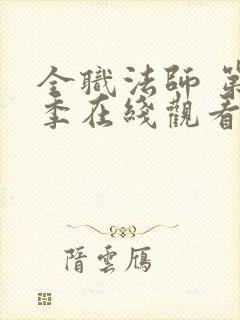 全職法師 第
季在綫觀看
隋雲鴈